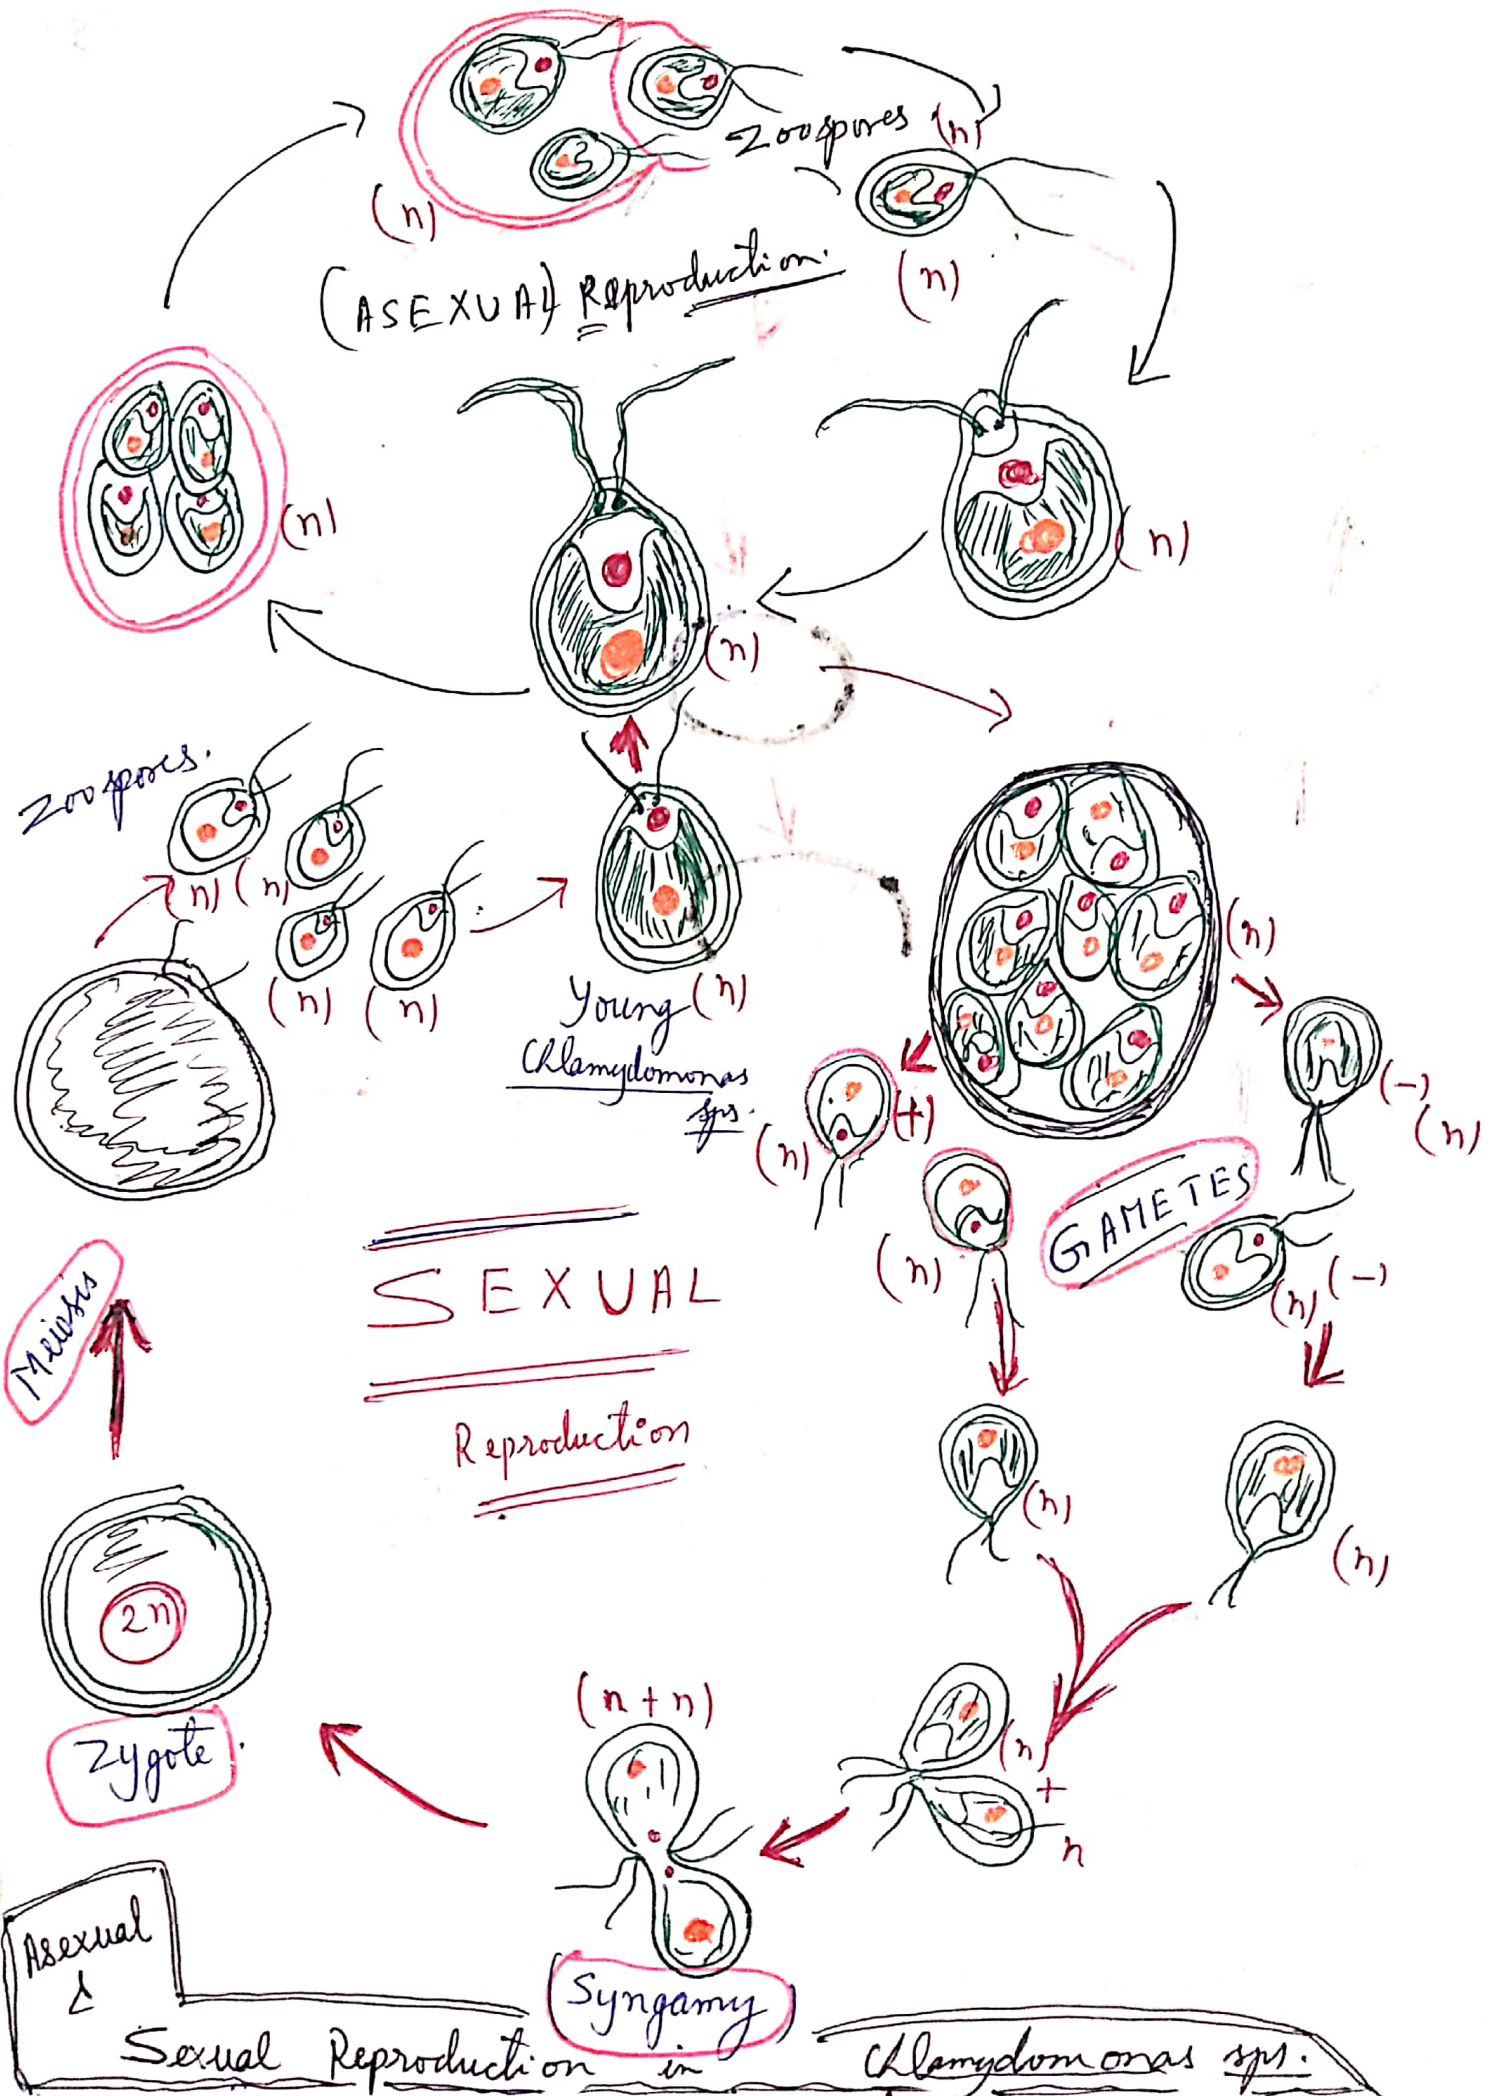 Zoospores (n)
(n)
(n)
(ASEXUAL) Reproduction.
(n)
(n)
(n)
Zoospores.
(n) (n)
(n) (n)
Young (n)
Chlamydomonas
sps.
(n)
(n) (+)
(-)
(n)
(n)
GAMETES
(n) (-)
SEXUAL
Reproduction
Meiosis
(n)
(n)
2n
Zygote.
(n+n)
(n)
+
n
Syngamy
Asexual
&
Sexual Reproduction in Chlamydomonas sps.